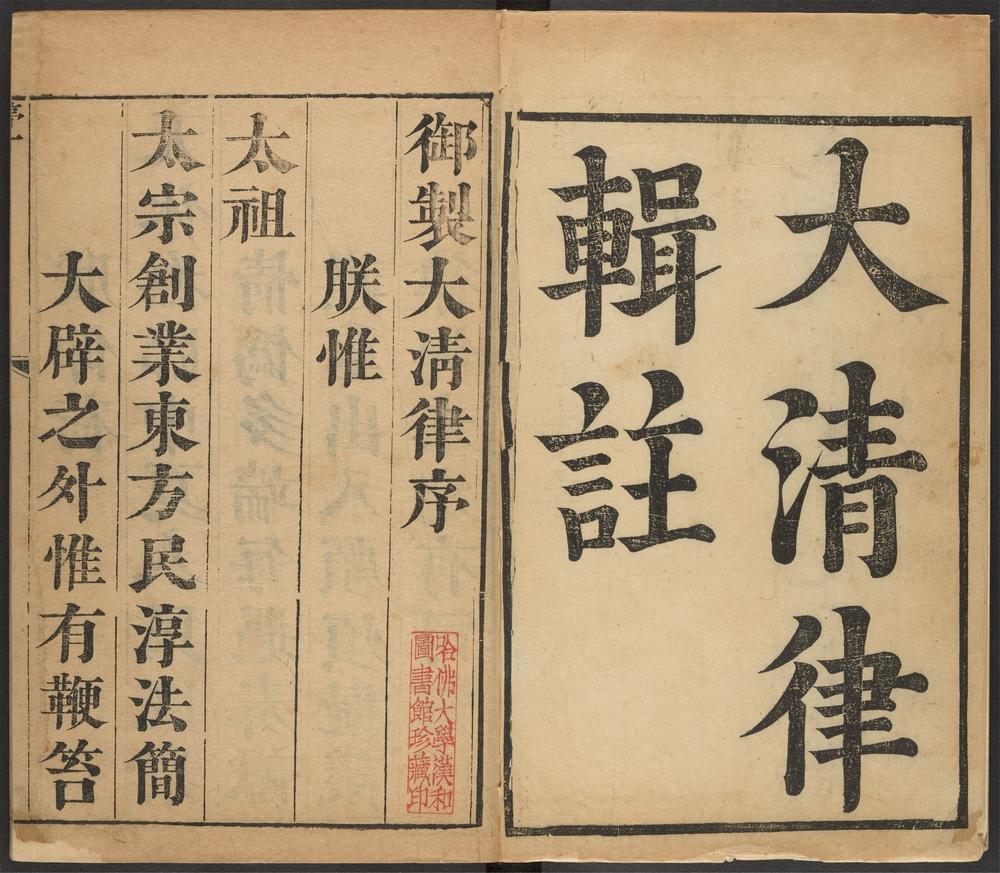 大清律
輯註
御製大清律序
朕惟
太祖
太宗創業東方民淳法簡
大辟之外惟有鞭笞
哈佛大學漢和
圖書館珍藏印